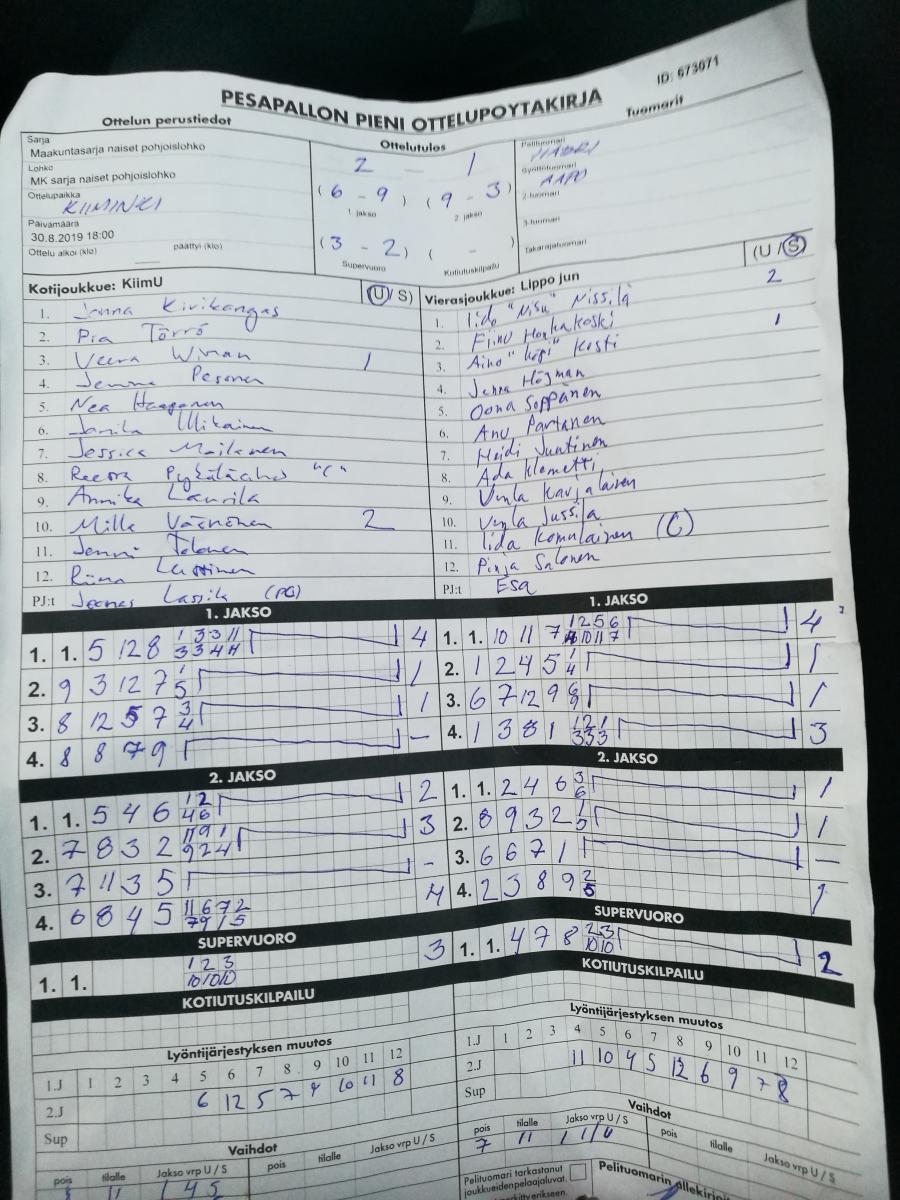 ID: 673071
PESAPALLON PIENI OTTELUPOYTAKIRJA
Ottelun perustiedot
Ottelutulos
Tuomarit
Sarja
Maakuntasarja naiset pohjoislohko
Lohko
MK sarja naiset pohjoislohko
Ottelupaikka
KIIMINKI
Päivämäärä
30.8.2019 18:00
Ottelu alkoi (klo) päättyi (klo)
2 — 1
(6 - 9) (9 - 3)
1. jakso 2. jakso
(3 - 2) ( - )
Supervuoro Kotiutuskilpailu
Pelituomari
HARRI
Syöttötuomari
AAPO
2-tuomari
3-tuomari
Takarajatuomari
Kotijoukkue: KiimU (U / S)
1. Jenna Kivikangas
2. Pia Törrö
3. Veera Wiman 1
4. Jemma Pesonen
5. Nea Haapanen
6. Janika Ulikainen
7. Jessica Moilanen
8. Reetta "C"
9. Annika Laurila
10. Milla Väänönen 2
11. Jenni Tolonen
12. Riina
PJ:t Joonas Lassila (PG)
Vierasjoukkue: Lippo jun (U / S)
1. Iida "Nisu" Nissilä 2
2. Eliina Honkakoski
3. Aino "köpi" Kosti 1
4. Jenna Högman
5. Oona Soppänen
6. Anu Partanen
7. Heidi Juntinen
8. Ada Klemetti
9. Venla Karjalainen
10. Venla Jussila
11. Iida Komulainen (C)
12. Pinja Salonen
PJ:t Esa
1. JAKSO
1. 1. 5 12 8 1 3 3 11 4
3 3 4 4
2. 9 3 12 7 1 1
5
3. 8 12 5 7 3 1
4
4. 8 8 7 9 —
1. JAKSO
1. 1. 10 11 7 1 2 5 6 4
4 10 11 7
2. 1 2 4 5 1 1
4
3. 6 7 12 9 6 1
9
4. 1 3 8 1 1 2 1 3
3 3 3
2. JAKSO
1. 1. 5 4 6 1 2 2
4 6
2. 7 8 3 2 11 9 1 3
9 2 4
3. 7 11 3 5 -
4. 6 8 4 5 11 6 7 2 4
7 9 1 5
2. JAKSO
1. 1. 2 4 6 3 1
6
2. 8 9 3 2 1 1
5
3. 6 6 7 1 —
4. 2 3 8 9 2 1
5
SUPERVUORO
1. 1. 1 2 3 3
10 10 10
SUPERVUORO
1. 1. 4 7 8 2 3 2
10 10
KOTIUTUSKILPAILU
KOTIUTUSKILPAILU
Lyöntijärjestyksen muutos
1.J 1 2 3 4 5 6 7 8 9 10 11 12
2.J 6 12 5 7 9 10 11 8
Sup
Lyöntijärjestyksen muutos
1.J 1 2 3 4 5 6 7 8 9 10 11 12
2.J 11 10 4 5 12 6 9 7 8
Sup
Vaihdot
pois tilalle Jakso vrp U / S pois tilalle Jakso vrp U / S
11 1 4 S
Vaihdot
pois tilalle Jakso vrp U / S pois tilalle Jakso vrp U / S
7 11 1 1 U
Pelituomari tarkastanut
joukkueidenpelaajaluvat.
Pelituomarin allekirjoi